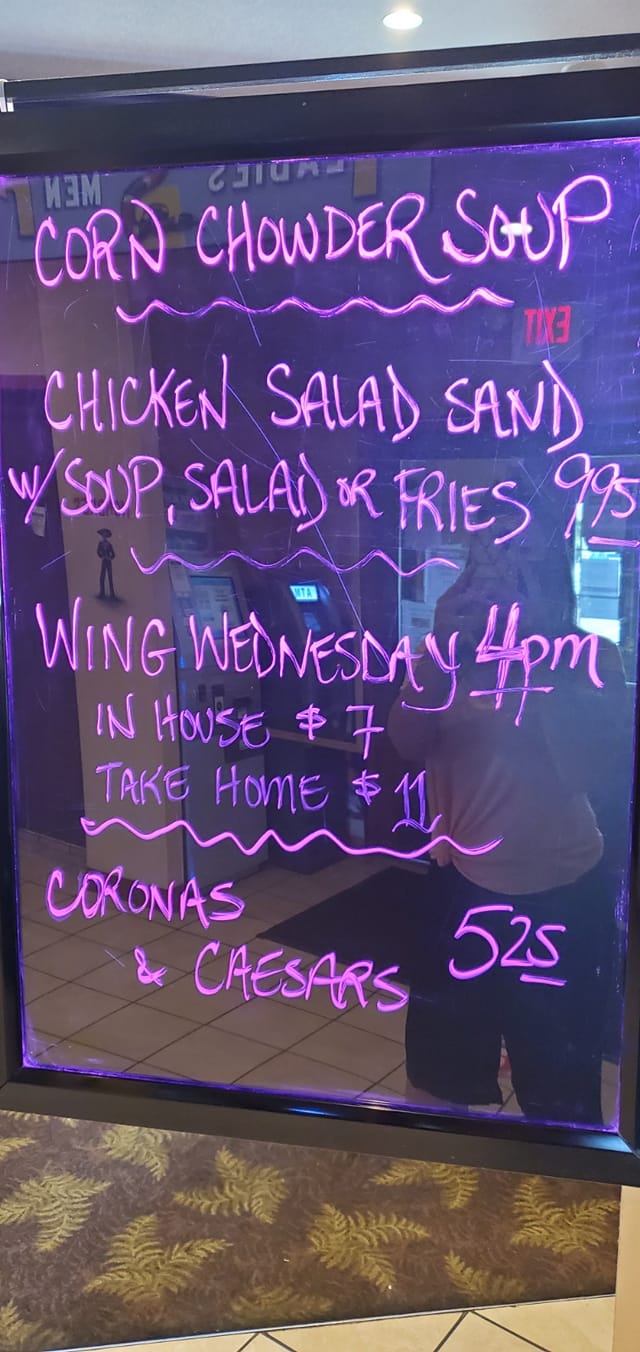 LADIES
MEN
CORN CHOWDER SOUP
EXIT
CHICKEN SALAD SAND
W/ SOUP, SALAD OR FRIES 995
ATM
WING WEDNESDAY 4pm
IN HOUSE $7
TAKE HOME $11
CORONAS
& CAESARS 525